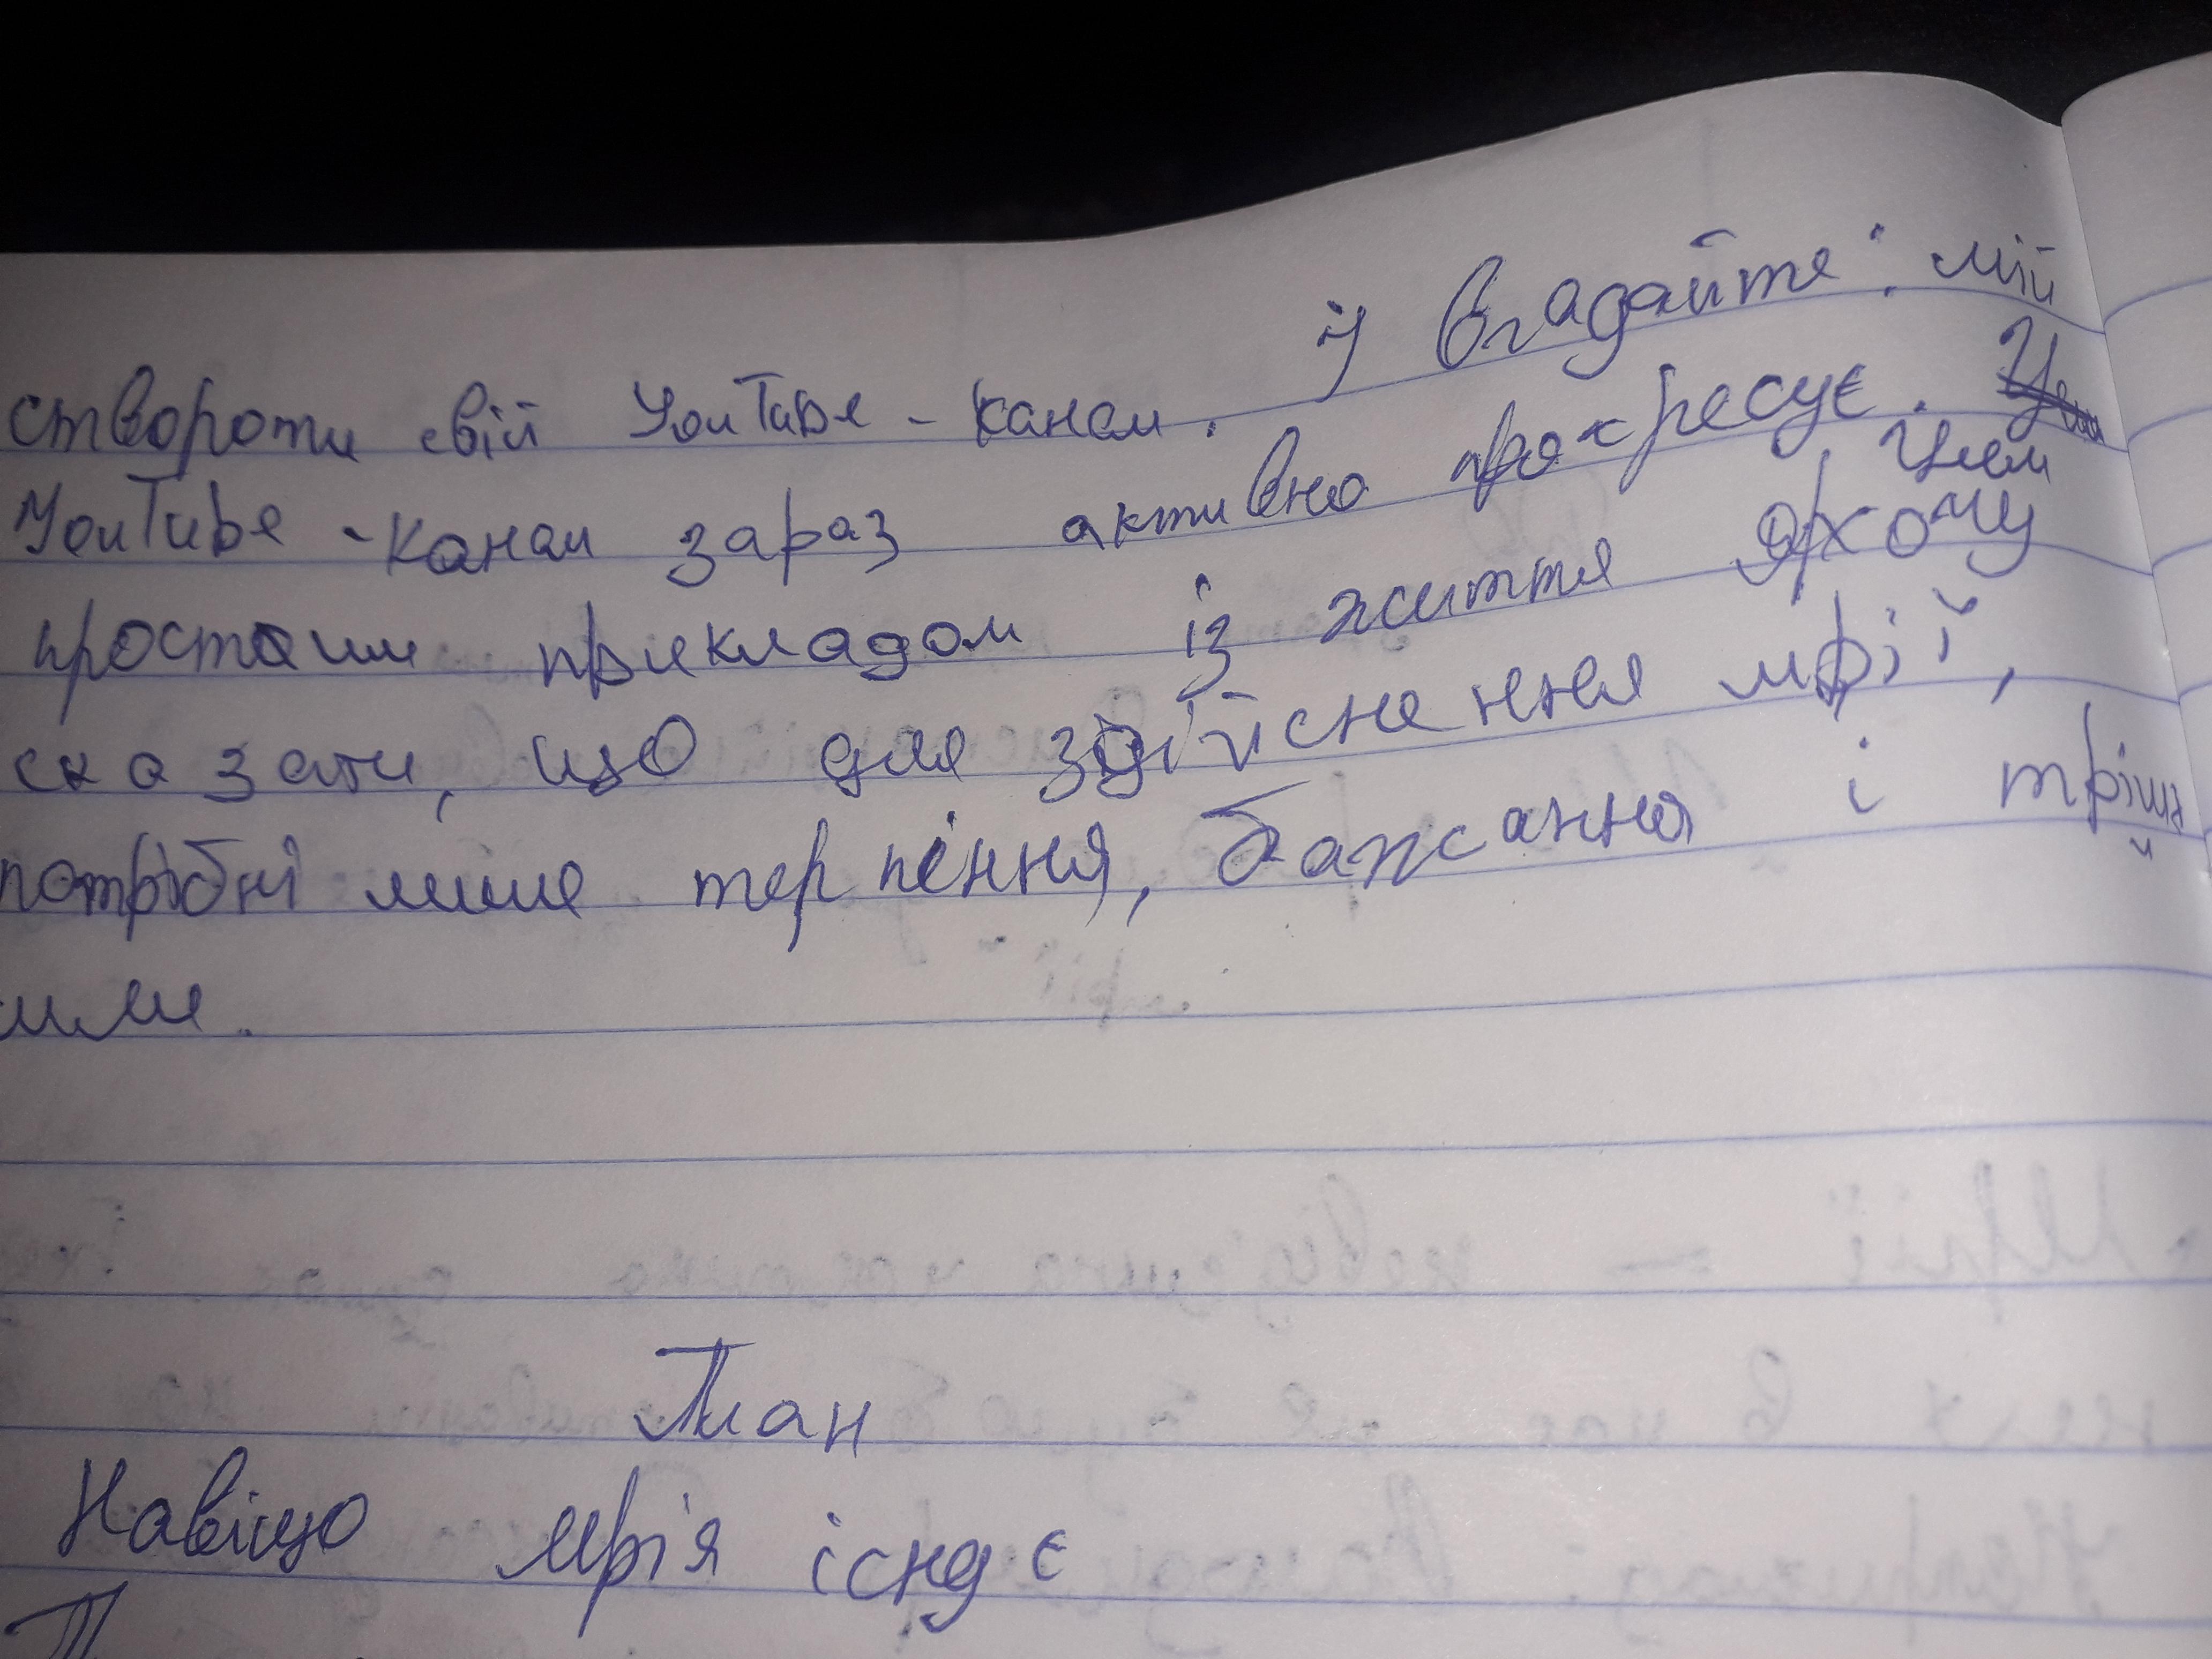 створоти свій YouTube-канал. Й вгадайте: мій
YouTube-канал зараз активно прогресує.
простим прикладом із життя я хочу Цим
сказати, що для здійснення мрії,
потрібні лише терпіння, бажання і трішки
План
Навіщо мрія існує